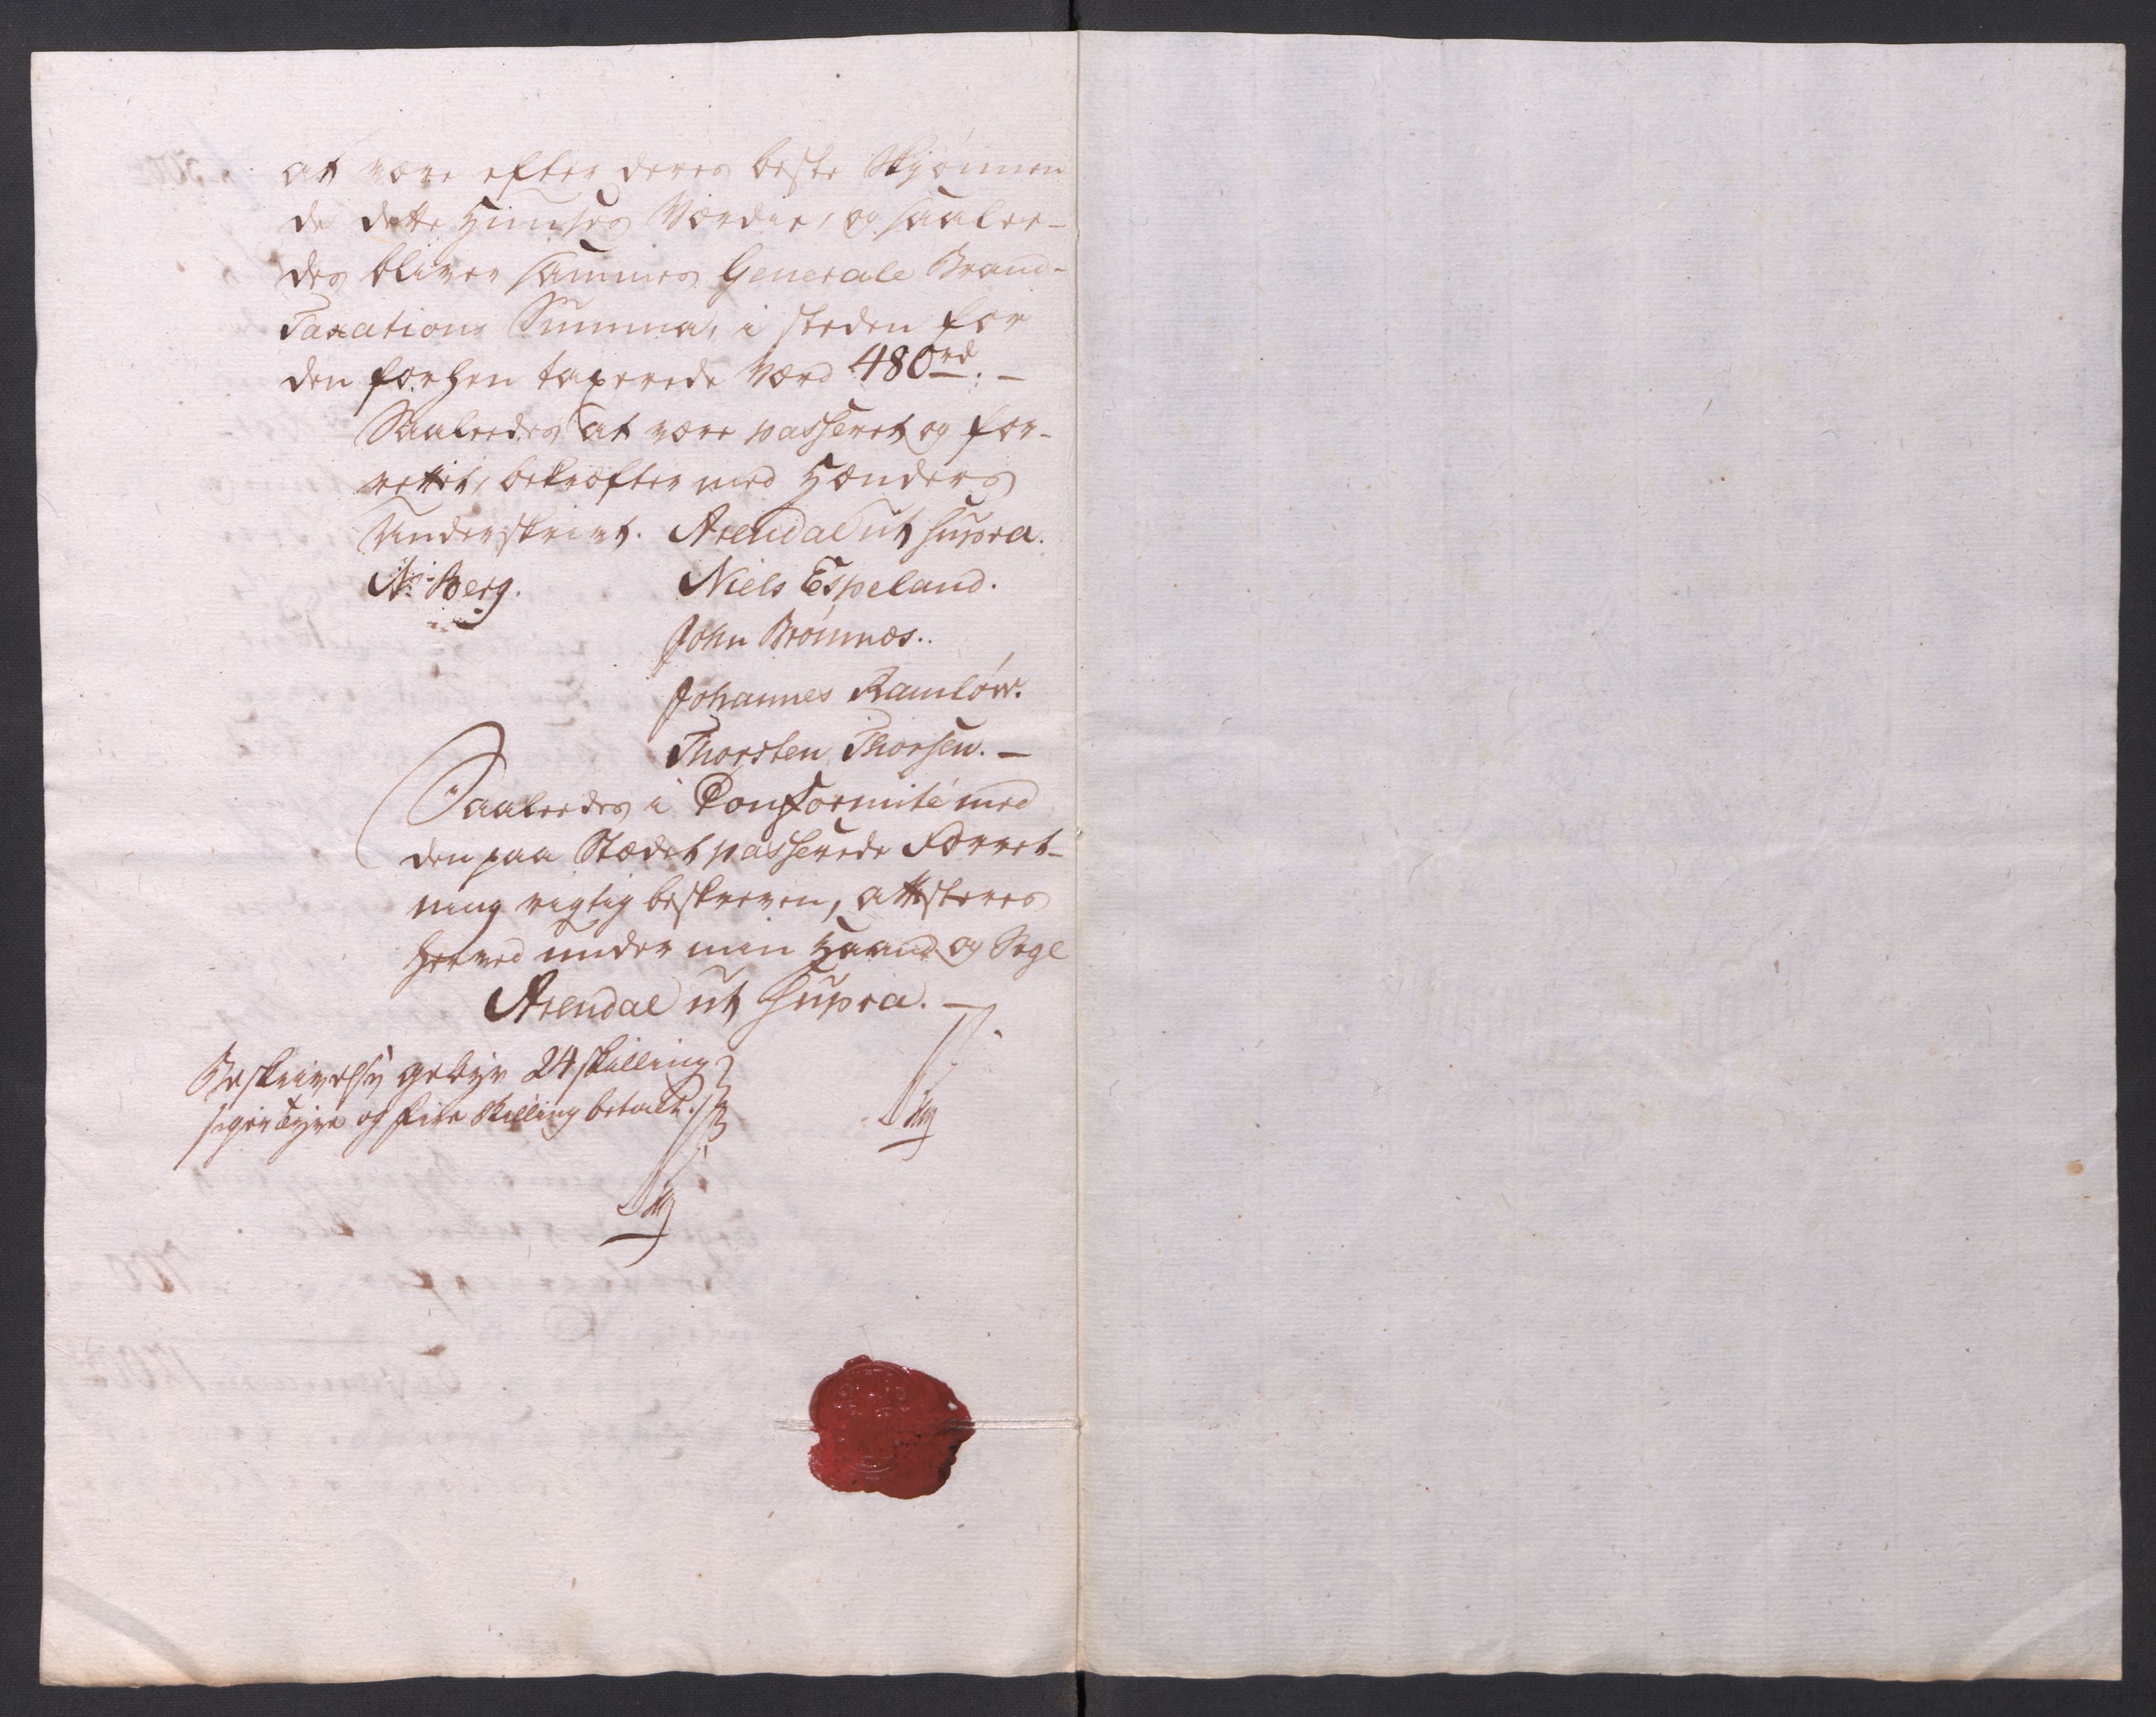 at være efter deres beste Skjønnen
de dette Huuses Værdie, og saalee-
des bliver sammes Generale Brand-
Taxations Summa, i steden for
den forhen taxerede Værd 480rd. –
Saaleedes at være passeret og for-
rettet, bekræfter med Hænders
Underskrivt. Arendal ut supra.
N: Berg. Niels Espeland.
John Brömnæs.
Johannes Ramlöw.
Thorsten Thorsen. –
Saaleedes i Conformité med
den paa Stædet passerede Forret-
ning rigtig beskreven, attesteres
herved under min Haand og Segl
Arendal ut supra. –
Beskrivelses gebyr 24 skilling
siger tyve og fire skilling betalt.